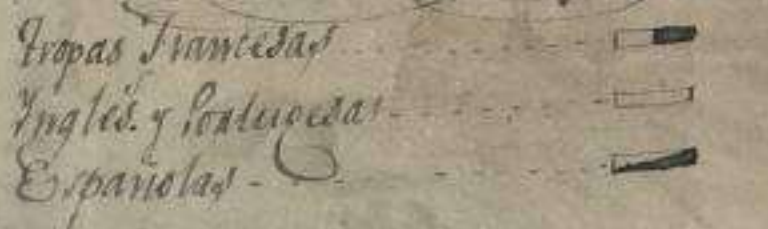 Tropas Francesas
Ingles.s y Portugesas
Españolas